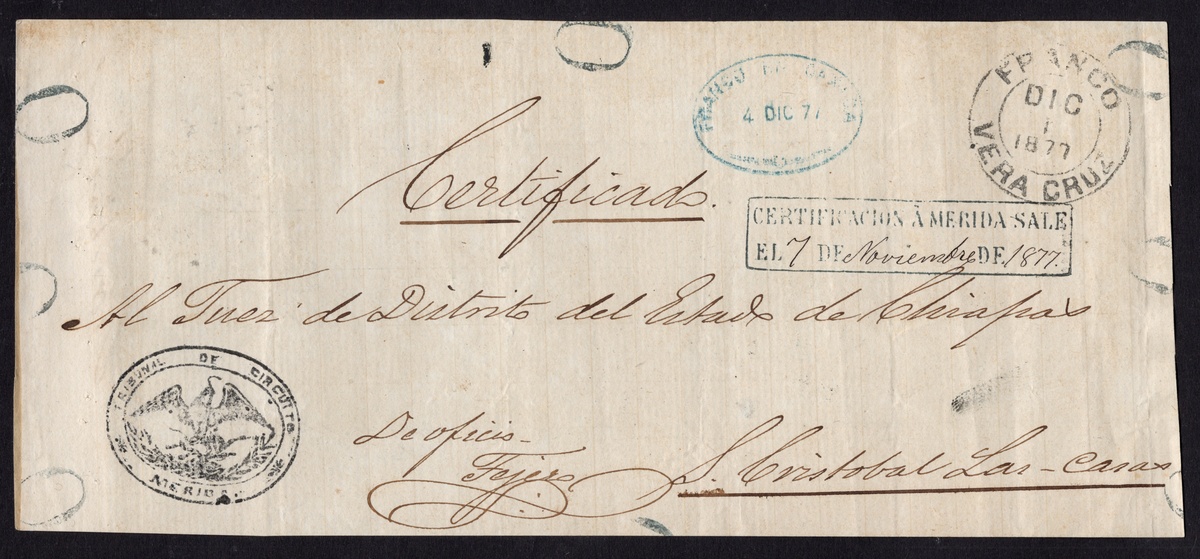 FRANCO
DIC
1
1877
VERA CRUZ
FRANCO EN OAXACA
4 DIC 77
Certificado.
CERTIFICACION À MERIDA SALE
EL 7 DE Noviembre DE 1877.
Al Juez de Distrito del Estado de Chiapas
TRIBUNAL DE CIRCUITO
MERIDA
De oficio-
S. Cristobal Las-casas